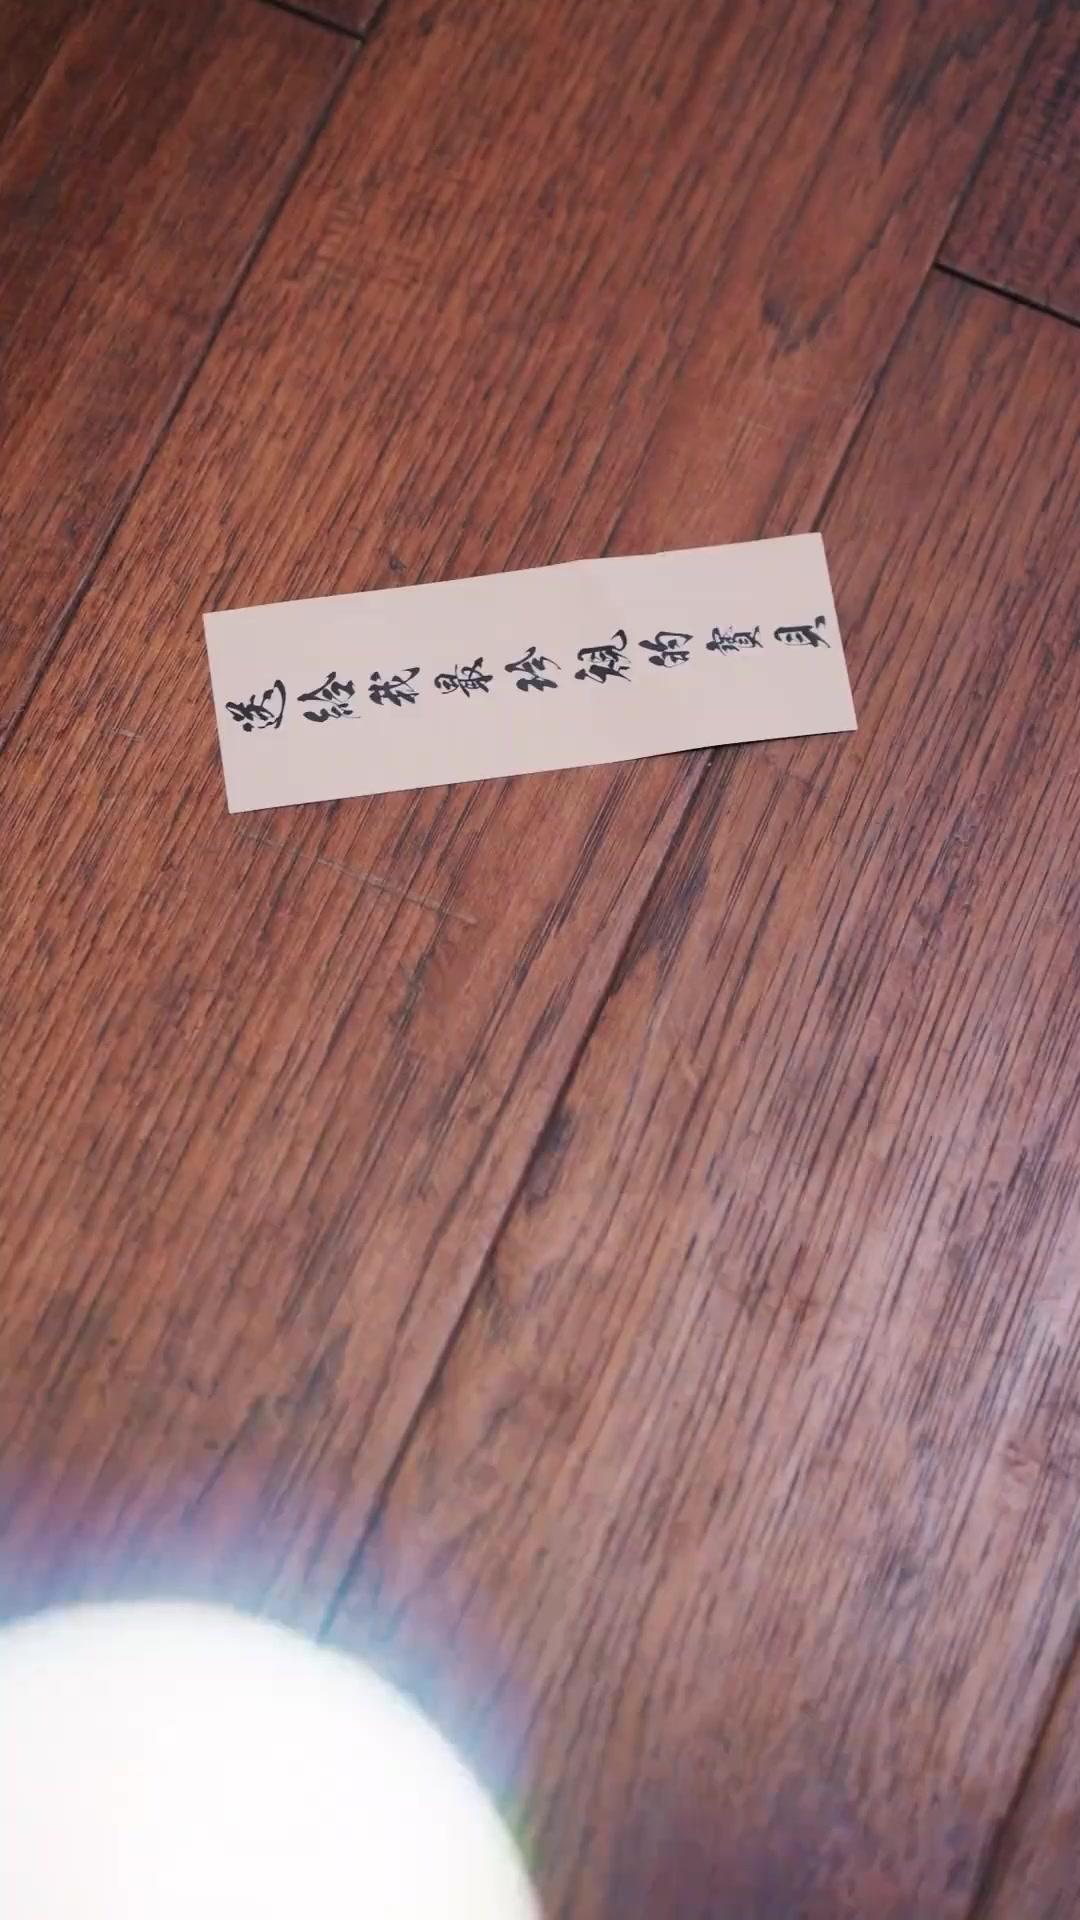 送給我最珍視的寶貝